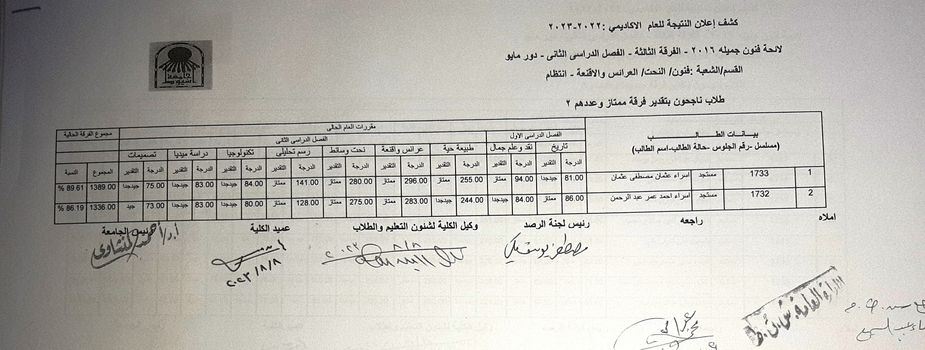 كشف إعلان النتيجة للعام الاكاديمي :٢٠٢٢-٢٠٢٣
لائحة فنون جميله ٢٠١٦ - الفرقة الثالثة - الفصل الدراسى الثانى - دور مايو
القسم/الشعبة :فنون/ النحت/ العرائس والاقنعة - انتظام
طلاب ناجحون بتقدير فرقة ممتاز وعددهم ٢
بيانات الطالب مقررات العام الحالى مجموع الفرقة الحالية
(مسلسل -رقم الجلوس -حالة الطالب-اسم الطالب) الفصل الدراسى الاول الفصل الدراسى الثانى
تاريخ نقد وعلم جمال طبيعة حية عرائس واقنعة نحت وسائط رسم تحليلى تكنولوجيا دراسة ميديا تصميمات
الدرجة التقدير الدرجة التقدير الدرجة التقدير الدرجة التقدير الدرجة التقدير الدرجة التقدير الدرجة التقدير الدرجة التقدير الدرجة التقدير المجموع النسبة
1 1733 مستجد اسراء عثمان مصطفى عثمان 81.00 جيدجدا 94.00 ممتاز 255.00 جيدجدا 296.00 ممتاز 280.00 ممتاز 141.00 ممتاز 84.00 جيدجدا 83.00 جيدجدا 75.00 جيدجدا 1389.00 89.61 %
2 1732 مستجد اسراء احمد عمر عبد الرحمن 86.00 ممتاز 84.00 جيدجدا 244.00 جيدجدا 283.00 ممتاز 275.00 ممتاز 128.00 ممتاز 80.00 جيدجدا 83.00 جيدجدا 73.00 جيد 1336.00 86.19 %
املاه راجعه رئيس لجنة الرصد وكيل الكلية لشئون التعليم والطلاب عميد الكلية رئيس الجامعة
٢٠٢٣/٨/٨